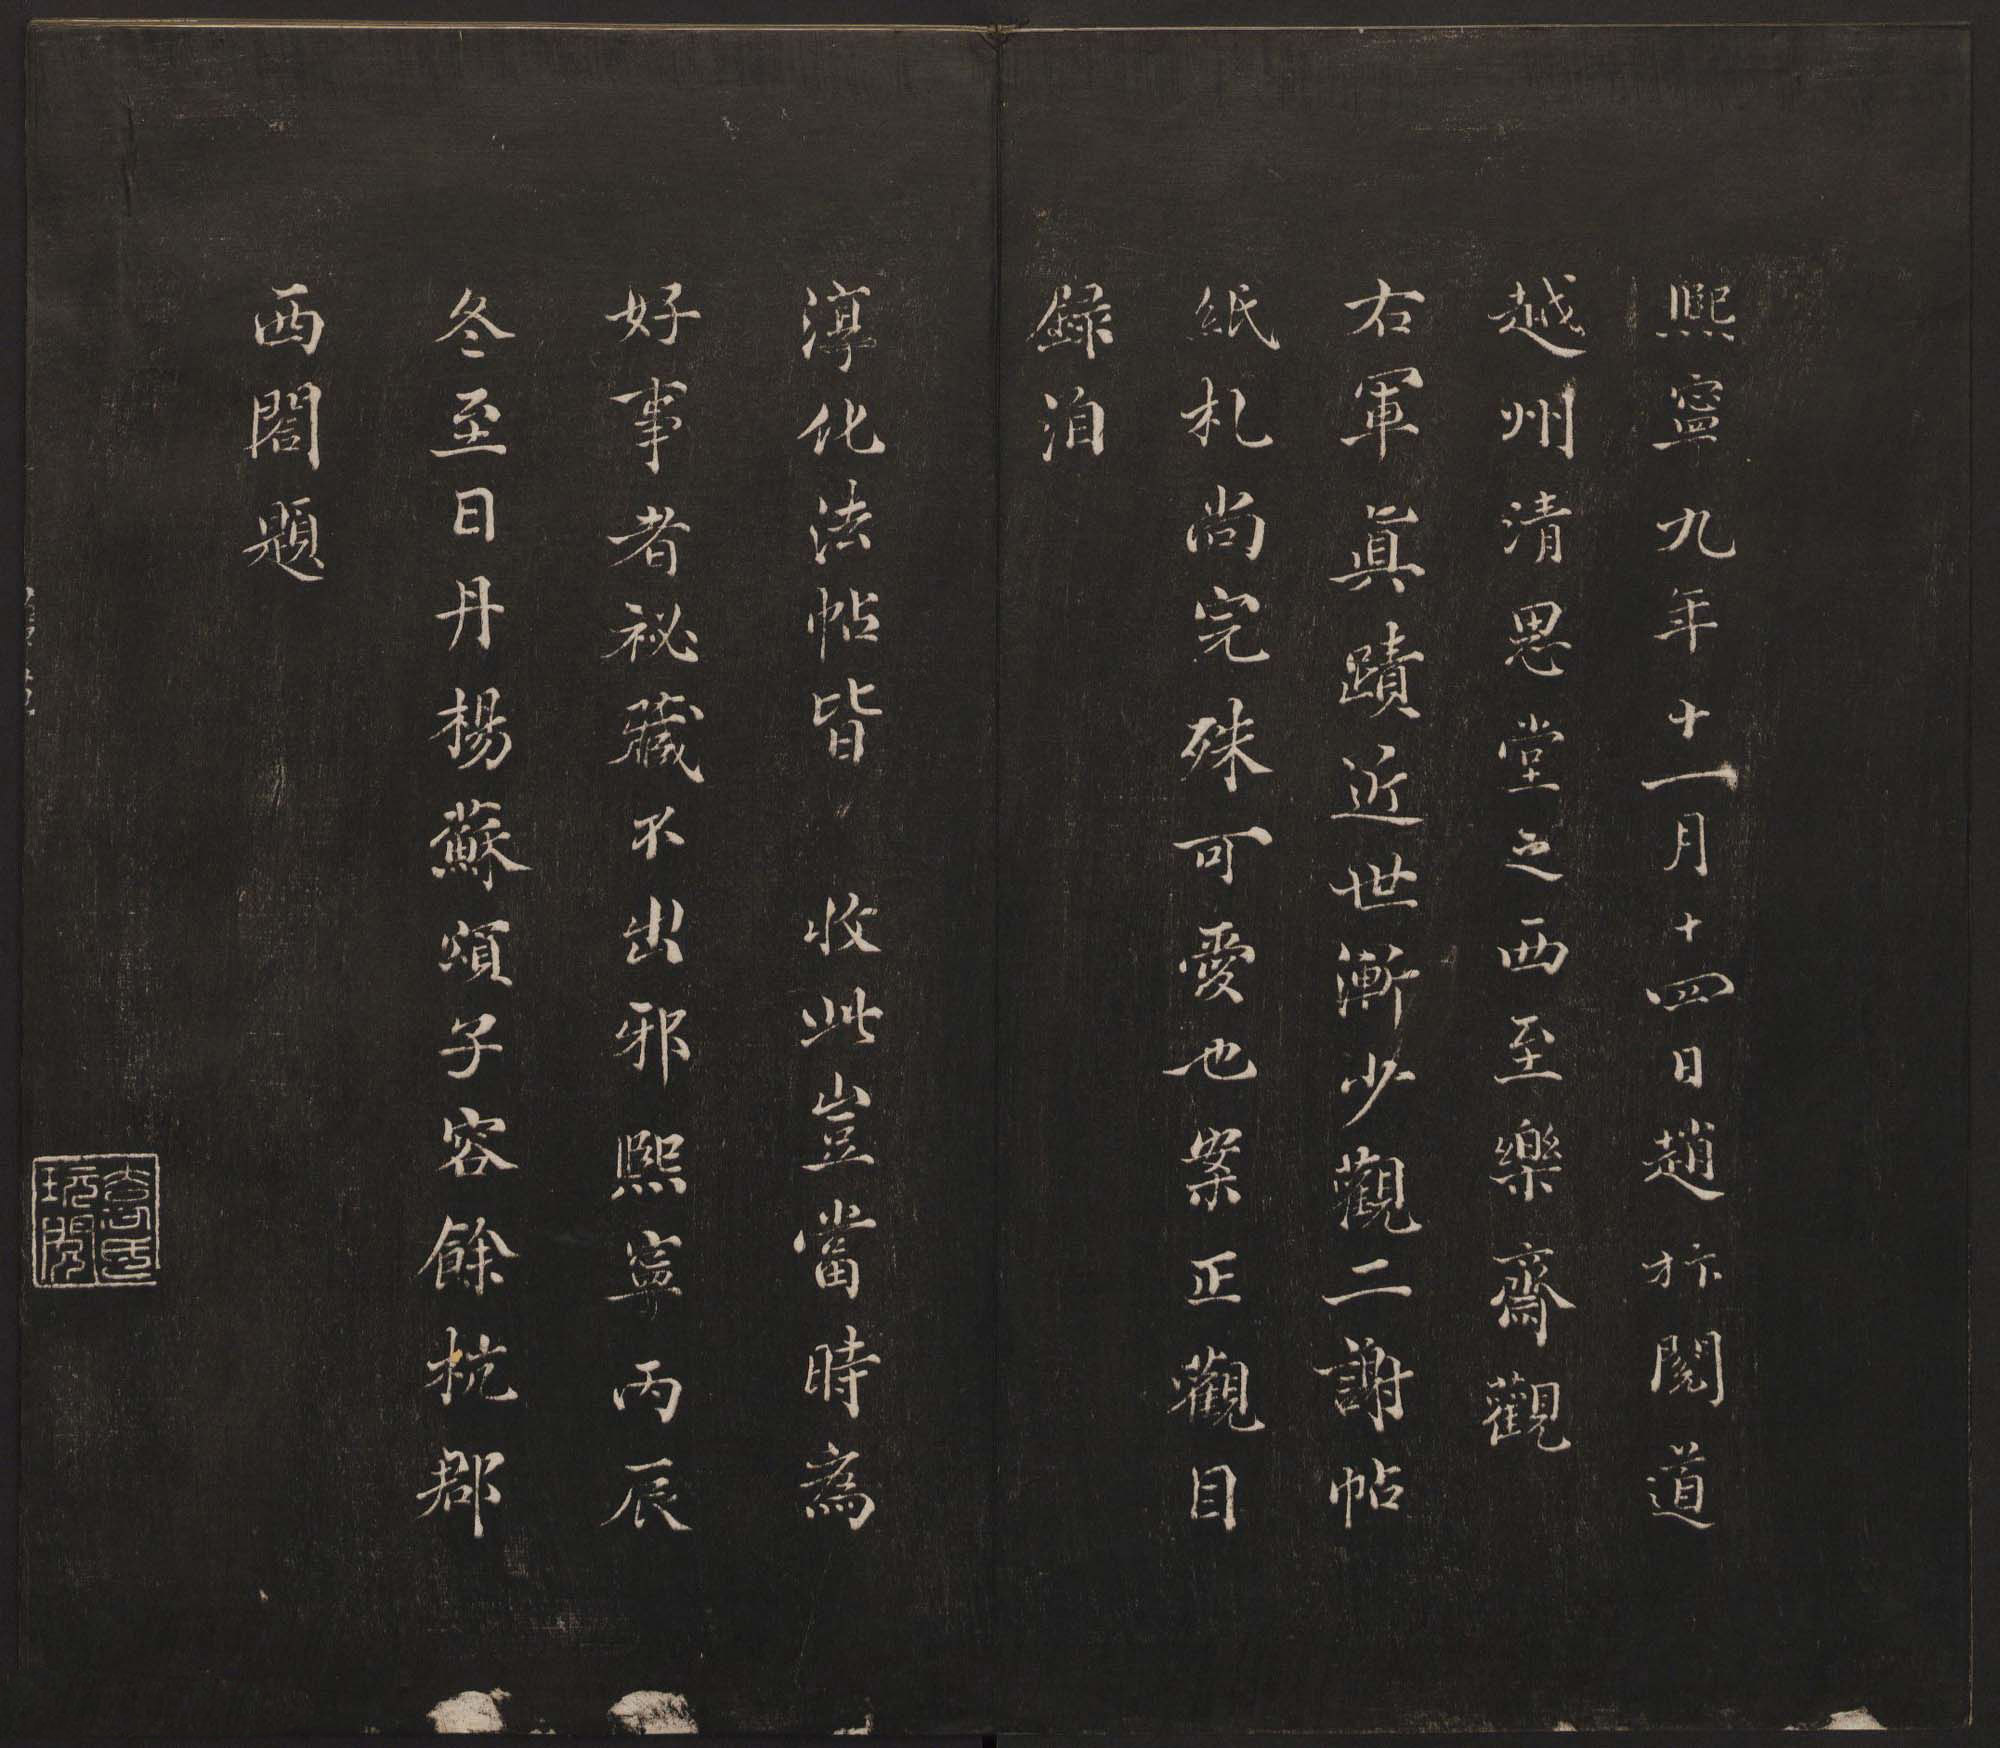 熙寧九年十一月十四日趙抃閱道
越州清思堂之西至樂齋觀
右軍真蹟近世漸少觀二謝帖
紙札尚完殊可愛也案正觀目
錄洎
淳化法帖皆 收此豈當時為
好事者祕藏不出邪熙寧丙辰
冬至日丹楊蘇頌子容餘杭郡
西閣題